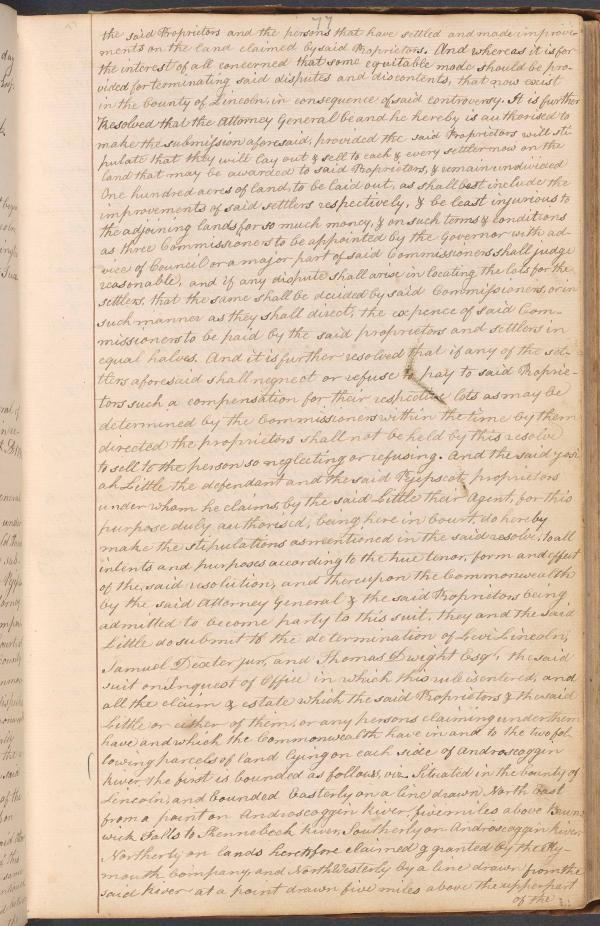 77
the said Proprietors and the persons that have settled and made improve-
ments on the land claimed by said Proprietors. And whereas it is for
the interest of all concerned that some equitable mode should be pro-
vided for terminating said disputes and discontents, that now exist
in the County of Lincoln, in consequence of said controversy. It is further
Resolved that the Attorney General be and he hereby is authorised to
make the submission aforesaid, provided the said Proprietors will sti-
pulate that they will lay out & sell to each & every settler now on the
land that may be awarded to said Proprietors, & remain undivided
One hundred acres of land, to be laid out, as shall best include the
improvements of said settlers respectively, & be least injurious to
the adjoining lands for so much money, & on such terms & conditions
as three Commissioners to be appointed by the Governor with ad-
vice of Council or a major part of said Commissioners shall judge
reasonable, and if any dispute shall arise in locating the lots for the
settlers, that the same shall be decided by said Commissioners, or in
such manner as they shall direct, the expence of said Com-
missioners to be paid by the said proprietors and settlers in
equal halves. And it is further resolved that if any of the set-
tlers aforesaid shall negnect or refuse to pay to said Proprie-
tors such a compensation for their respective lots as may be
determined by the Commissioners within the time by them
directed the proprietors shall not be held by this resolve
to sell to the person so neglecting or refusing. And the said Josi-
ah Little the defendant and the said Pejepscot proprietors
under whom he claims, by the said Little their Agent, for this
purpose duly authorised, being here in Court, do hereby
make the stipulations as mentioned in the said resolve, to all
intents and purposes according to the true tenor, form and effect
of the said resolution, and thereupon the Commonwealth
by the said Attorney General & the said Proprietors being
admitted to become party to this suit, they and the said
Little do submit to the determination of Levi Lincoln,
Samuel Dexter jur, and Thomas Dwight Esqr, the said
suit on Inquest of Office in which this rule is entered, and
all the claim & estate which the said Proprietors & the said
Little or either of them, or any persons claiming under them
have and which the Commonwealth have in and to the two fol-
lowing parcels of land lying on each side of Androscoggin
River the first is bounded as follows, viz. Situated in the County of
Lincoln, and bounded Easterly on a line drawn North East
from a point on Androscoggin River, five miles above Bruns
wick Falls to Kennebeck River, Southerly on Androscoggin River
Northerly on lands heretofore claimed & granted by the Ply-
mouth Company, and North Westerly by a line drawn from the
said River at a point drawn five miles above the upper part
of the